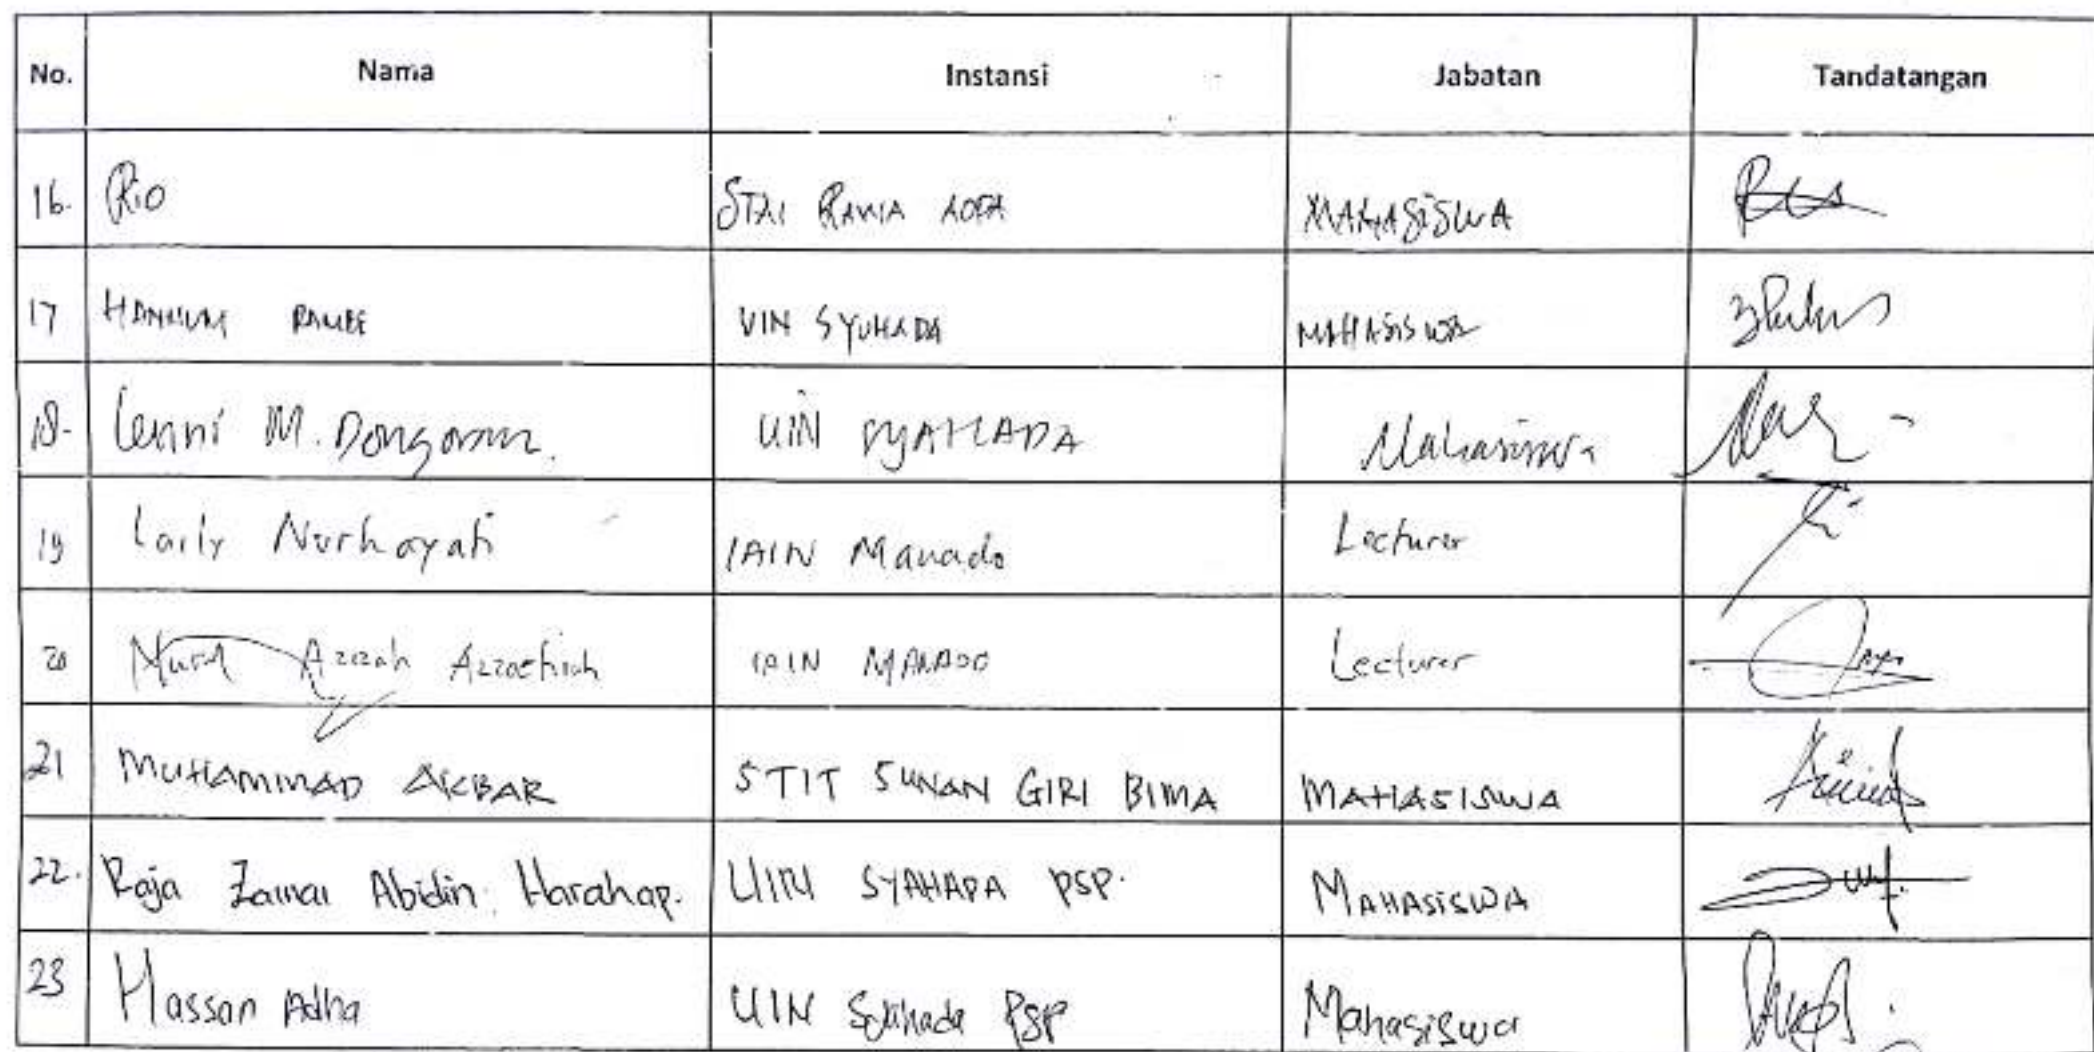 No. Nama Instansi Jabatan Tandatangan
16. Rio STAI MAHASISWA
17 HANNUM RAMBE UIN SYUHADA MAHASISWA
18. Lenni M. Dongoran. UIN SYAHADA Mahasiswa
19 Laily Nurhayati IAIN Manado Lecturer
20 Nurul Azizah IAIN MANADO Lecturer
21 MUHAMMAD AKBAR STIT SUNAN GIRI BIMA MAHASISWA
22. Raja Zainal Abidin Harahap. UIN SYAHADA PSP. MAHASISWA
23 Hassan Adha UIN Syahada PSP Mahasiswa